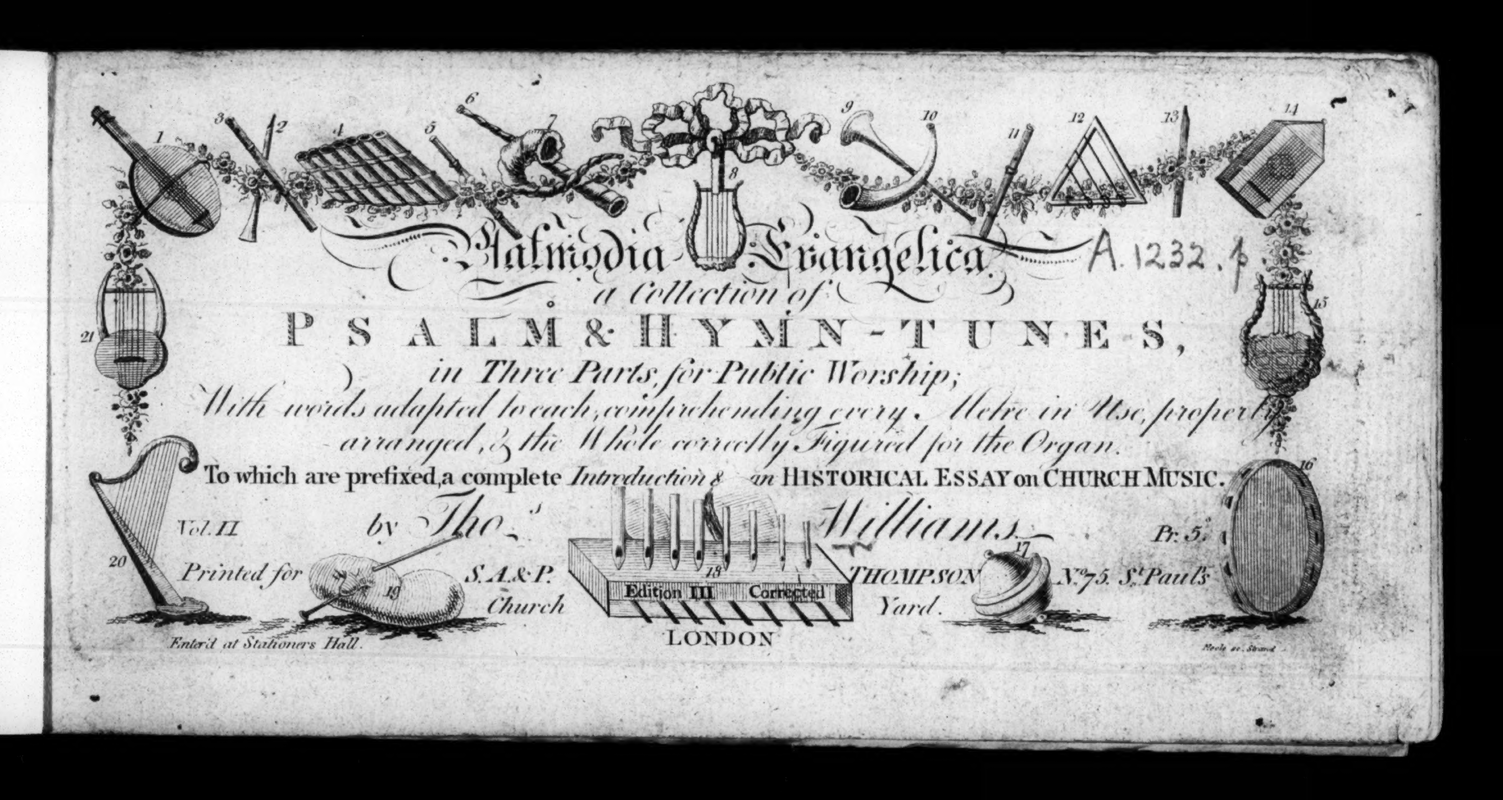 1 3 2 4 5 6 7 8 9 10 11 12 13 14
Psalmodia Evangelica,
A. 1232. p
a Collection of
PSALM & HYMN-TUNES,
in Three Parts, for Public Worship;
With words adapted to each, comprehending every Metre in Use, properly
arranged, & the Whole correctly Figured for the Organ.
To which are prefixed, a complete Introduction & an HISTORICAL ESSAY on CHURCH MUSIC.
Vol. II by Tho.s Williams. Pr. 5.s
Printed for S. A. & P. THOMPSON No. 75. St. Paul's
Edition III Corrected
Church Yard.
LONDON
Enter'd at Stationers Hall.
sc. Strand
15
16
17
18
19
20
21